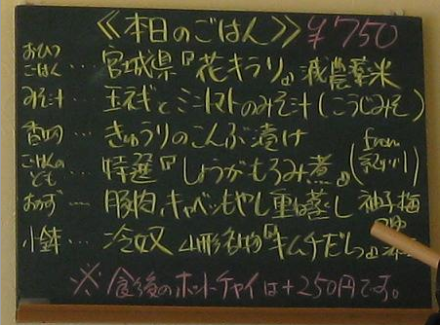 ≪本日のごはん≫ ¥750
おひつごはん… 宮城県『花キラリ』減農薬米
みそ汁… 玉ネギとミニトマトのみそ汁(こうじみそ)
香の物… きゅうりのこんぶ漬け
ごはんのとも… 特選『しょうがもろみ煮』(from
おかず… 豚肉、キャベツ、もやし重ね蒸し 柚子梅
小鉢… 冷奴 山形名物『キムチだし』
※食後のホットチャイは+250円です。